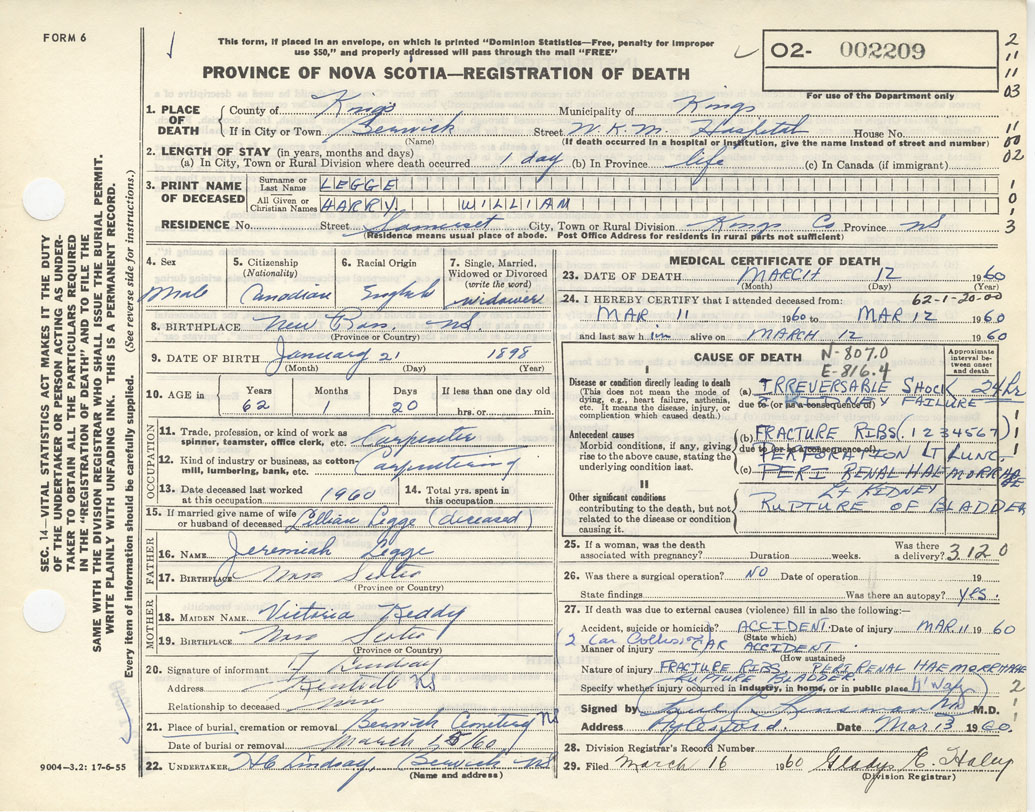 FORM 6
This form, if placed in an envelope, on which is printed "Dominion Statistics—Free, penalty for improper
use $50," and properly addressed will pass through the mail "FREE"
PROVINCE OF NOVA SCOTIA—REGISTRATION OF DEATH
02- 002209
For use of the Department only
2
11
11
03
11
00
02
1
0
1
3
SEC. 14—VITAL STATISTICS ACT MAKES IT THE DUTY
OF THE UNDERTAKER OR PERSON ACTING AS UNDER-
TAKER TO OBTAIN ALL THE PARTICULARS REQUIRED
IN THE "REGISTRATION OF DEATH" AND TO FILE THE
SAME WITH THE DIVISION REGISTRAR WHO SHALL ISSUE THE BURIAL PERMIT.
WRITE PLAINLY WITH UNFADING INK. THIS IS A PERMANENT RECORD.
Every item of information should be carefully supplied. (See reverse side for instructions.)
1. PLACE OF DEATH
County of Kings Municipality of Kings
If in City or Town Berwick Street W.K.M. Hospital House No.
(Name) (If death occurred in a hospital or institution, give the name instead of street and number)
2. LENGTH OF STAY (in years, months and days)
(a) In City, Town or Rural Division where death occurred 1 day (b) In Province life (c) In Canada (if immigrant)
3. PRINT NAME OF DECEASED
Surname or Last Name LEGGE
All Given or Christian Names HARRY. WILLIAM
RESIDENCE No. Street Somerset City, Town or Rural Division Kings Co Province NS
(Residence means usual place of abode. Post Office Address for residents in rural parts not sufficient)
4. Sex Male
5. Citizenship (Nationality) Canadian
6. Racial Origin English
7. Single, Married, Widowed or Divorced (write the word) widower
8. BIRTHPLACE New Ross, NS.
(Province or Country)
9. DATE OF BIRTH January 21 1898
(Month) (Day) (Year)
10. AGE in Years 62 Months 1 Days 20 If less than one day old hrs. or min.
OCCUPATION
11. Trade, profession, or kind of work as spinner, teamster, office clerk, etc. Carpenter
12. Kind of industry or business, as cotton-mill, lumbering, bank, etc. Carpentering
13. Date deceased last worked at this occupation. 1960
14. Total yrs. spent in this occupation.
15. If married give name of wife or husband of deceased Lillian Legge (deceased)
FATHER
16. NAME Jeremiah Legge
17. BIRTHPLACE Nova Scotia
(Province or Country)
MOTHER
18. MAIDEN NAME Victoria Keddy
19. BIRTHPLACE Nova Scotia
(Province or Country)
20. Signature of informant Lindsay
Address Kentville NS
Relationship to deceased none
21. Place of burial, cremation or removal Berwick Cemetery NS
Date of burial or removal March 15/60
22. UNDERTAKER H C Lindsay, Berwick NS
(Name and address)
9004—3.2: 17-6-55
MEDICAL CERTIFICATE OF DEATH
23. DATE OF DEATH MARCH 12 1960
(Month) (Day) (Year)
62-1-20-00
24. I HEREBY CERTIFY that I attended deceased from:
MAR 11 1960 to MAR 12 1960
and last saw him alive on MARCH 12 1960
CAUSE OF DEATH N-807.0
E-816.4
Approximate interval between onset and death
I
Disease or condition directly leading to death
(This does not mean the mode of dying, e.g., heart failure, asthenia, etc. It means the disease, injury, or complication which caused death.)
(a) IRREVERSABLE SHOCK 24 hr
due to (or as a consequence of)
KIDNEY FAILURE
Antecedent causes
Morbid conditions, if any, giving rise to the above cause, stating the underlying condition last.
(b) FRACTURE RIBS (1234567)
due to (or as a consequence of)
PERFORATION LT LUNG.
(c) PERI RENAL HAEMORRHAGE
LT KIDNEY
II
Other significant conditions
contributing to the death, but not related to the disease or condition causing it.
RUPTURE OF BLADDER
25. If a woman, was the death associated with pregnancy? Duration weeks. Was there a delivery? 3.12 0
26. Was there a surgical operation? NO Date of operation 19
State findings Was there an autopsy? yes.
27. If death was due to external causes (violence) fill in also the following:—
Accident, suicide or homicide? ACCIDENT. Date of injury MAR 11 1960
(State which)
(2 Car Collision)
Manner of injury CAR ACCIDENT
(How sustained)
Nature of injury FRACTURE RIBS. PERIRENAL HAEMORRHAGE
RUPTURE BLADDER
Specify whether injury occurred in industry, in home, or in public place H'Way
2
1
Signed by M.D.
Address Aylesford. Date Mar 13 1960
28. Division Registrar's Record Number
29. Filed March 16 1960 Gladys E. Haley
(Division Registrar)